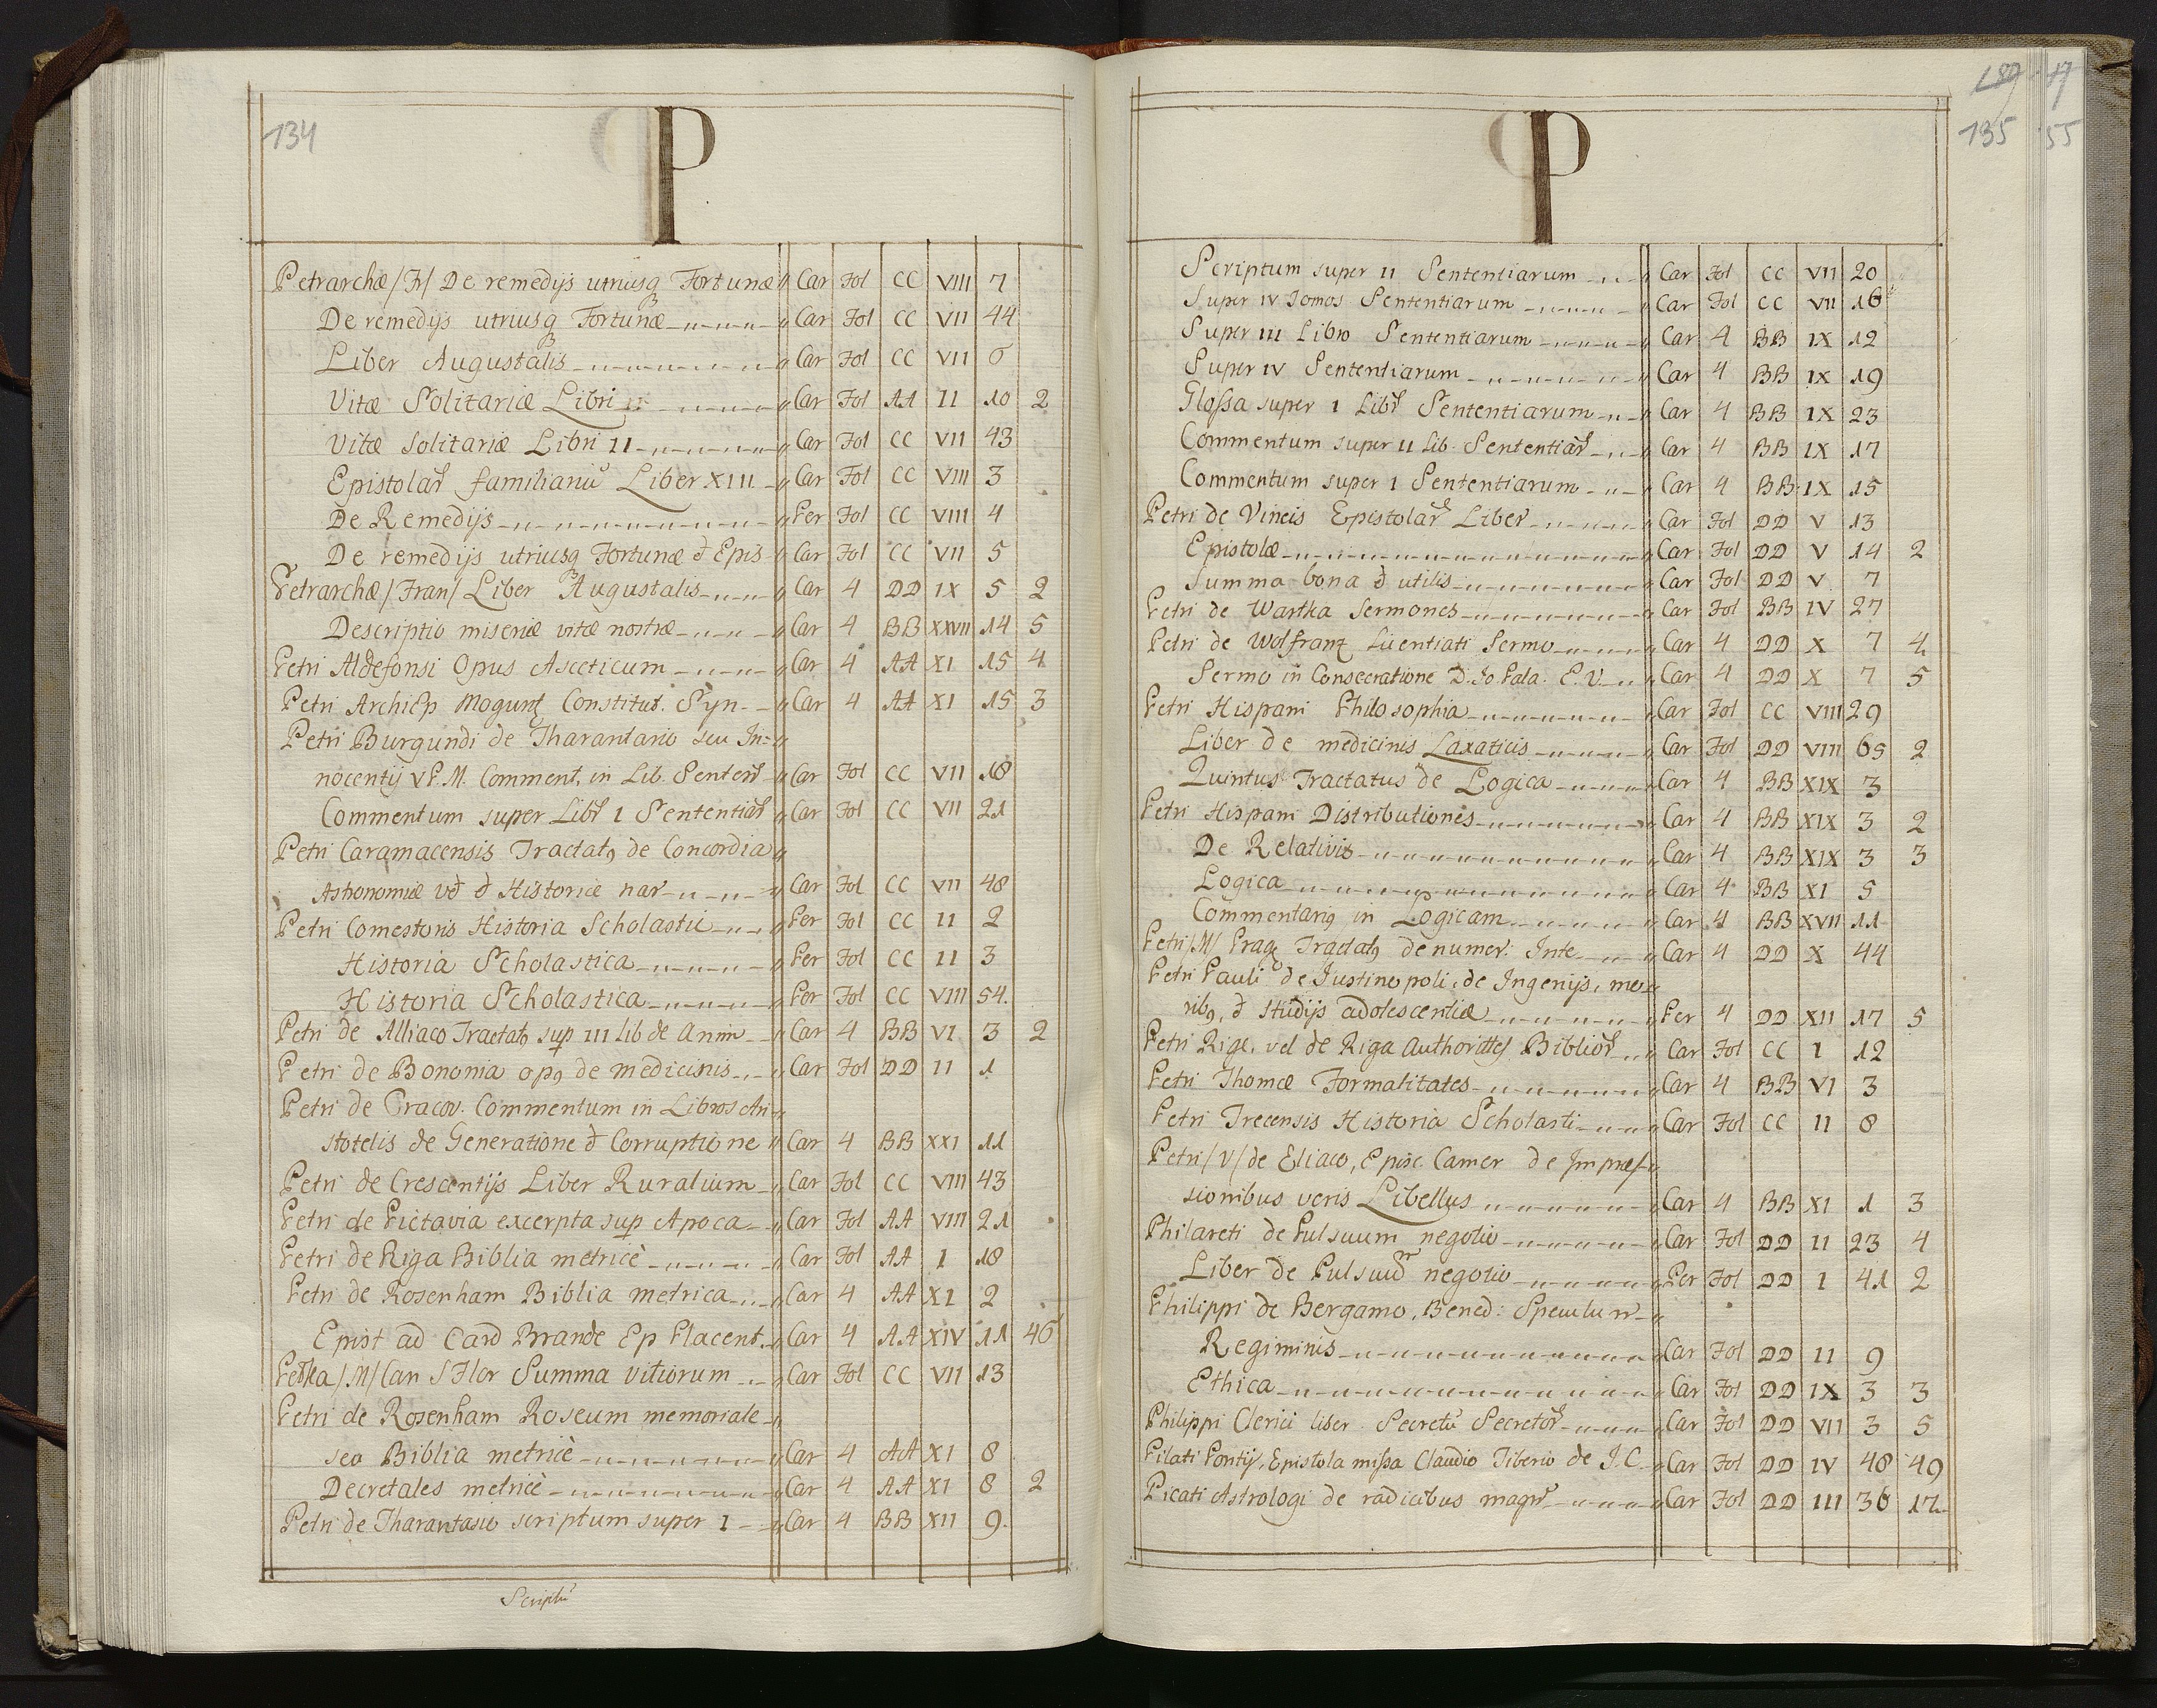 134
P
Petrarchæ /F/ De remedijs utriusq Fortunæ Car Fol CC VIII 7
De remedijs utriusq Fortunæ Car Fol CC VII 44
Liber Augustalis Car Fol CC VII 6
Vitæ Solitariæ Libri II Car Fol AA II 10 2
Vitæ Solitariæ Libri II Car Fol CC VII 43
Epistolar familiariũ Liber XIII Car Fol CC VIII 3
De Remedijs Per Fol CC VIII 4
De remedijs utriusq Fortunæ & Epis Car Fol CC VII 5
Petrarchæ /Fran/ Liber Augustalis Car 4 DD IX 5 2
Descriptio miseriæ vitæ nostræ Car 4 BB XXVII 14 5
Petri Aldefonsi Opus Asceticum Car 4 AA XI 15 4
Petri Archiep Mogunt Constitut. Syn. Car 4 AA XI 15 3
Petri Burgundi de Tharantario seu In=
nocentij V P. M. Comment. in Lib. Senten Car Fol CC VII 18
Commentum super Lib I Sententiar Car Fol CC VII 21
Petri Caramacensis Tractat9 de Concordia
Astronomiæ & Historiæ nar Car Fol CC VII 48
Petri Comestoris Historia Scholastic Per Fol CC II 2
Historia Scholastica Per Fol CC II 3
Historia Scholastica Per Fol CC VIII 54.
Petri de Alliaco Tractat9 sup III lib de Anim Car 4 BB VI 3 2
Petri de Bononia op9 de medicinis Car Fol DD II 1
Petri de Cracov. Commentum in Libros Ari-
stotelis de Generatione & Corruptione Car 4 BB XXI 11
Petri de Crescentijs Liber Ruralium Car Fol CC VIII 43
Petri de Pictavia excerpta sup Apoca Car Fol AA VIII 21
Petri de Riga Biblia metricè Car Fol AA I 18
Petri de Rosenham Biblia metrica Car 4 AA XI 2
Epist ad Card Brande Ep Placent. Car 4 AA XIV 11 46
Petka /M/ Can S Flor Summa vitiorum Car Fol CC VII 13
Petri de Rosenham Roseum memoriale
seu Biblia metricè Car 4 AA XI 8
Decretales metricè Car 4 AA XI 8 2
Petri de Tharantasio scriptum super I Car 4 BB XII 9.
Scriptũ
135 55
P
Scriptum super II Sententiarum Car Fol CC VII 20
Super IV Tomos Sententiarum Car Fol CC VII 16
Super III Libro Sententiarum Car 4 BB IX 12
Super IV Sententiarum Car 4 BB IX 19
Glossa super I Libr Sententiarum Car 4 BB IX 23
Commentum super II Lib. Sententiar Car 4 BB IX 17
Commentum super I Sententiarum Car 4 BB IX 15
Petri de Vineis Epistolar Liber Car Fol DD V 13
Epistolæ Car Fol DD V 14 2
Summa bona & utilis Car Fol DD V 7
Petri de Wartka Sermones Car Fol BB IV 27
Petri de Wolfranz Licentiati Sermo Car 4 DD X 7 4
Sermo in Consecratione D. Jo. Pala. E. V. Car 4 DD X 7 5
Petri Hispani Philosophia Car Fol CC VIII 29
Liber de medicinis Laxaticis Car Fol DD VIII 65 2
Quintus Tractatus de Logica Car 4 BB XIX 3
Petri Hispani Distributiones Car 4 BB XIX 3 2
De Relativis Car 4 BB XIX 3 3
Logica Car 4 BB XI 5
Commentari9 in Logicam Car 4 BB XVII 11
Petri /M/ Prag Tractat9 de numer. Inte Car 4 DD X 44
Petri Pauli de Justinopoli, de Ingenijs, mo
rib9, & studijs adolescentiæ Per 4 DD XII 17 5
Petri Rige, vel de Riga Authoritates Biblior Car Fol CC I 12
Petri Thomæ Formalitates Car 4 BB VI 3
Petri Trecensis Historia Scholasti Car Fol CC II 8
Petri /V/ de Eliaco, Episc Camer de Impres-
sionibus veris Libellus Car 4 BB XI 1 3
Philareti de Pulsuum negotio Car Fol DD II 23 4
Liber de Pulsuum negotio Per Fol DD I 41 2
Philippi de Bergamo, Bened: Speculum
Regiminis Car Fol DD II 9
Ethica Car Fol DD IX 3 3
Philippi Clerici liber Secretũ Secretor Car Fol DD VII 3 5
Pilati Pontij, Epistola missa Claudio Tiberio de J. C. Car Fol DD IV 48 49
Picati Astrologi de radicibus magn Car Fol DD III 36 17